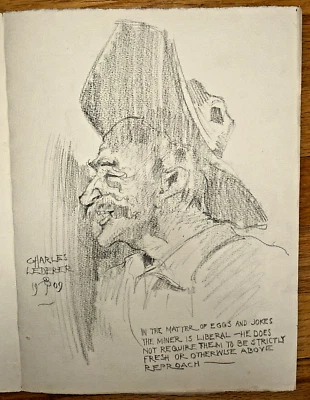 CHARLES
LEDERER
1909
IN THE MATTER OF EGGS AND JOKES
THE MINER IS LIBERAL — HE DOES
NOT REQUIRE THEM TO BE STRICTLY
FRESH OR OTHERWISE ABOVE
REPROACH —